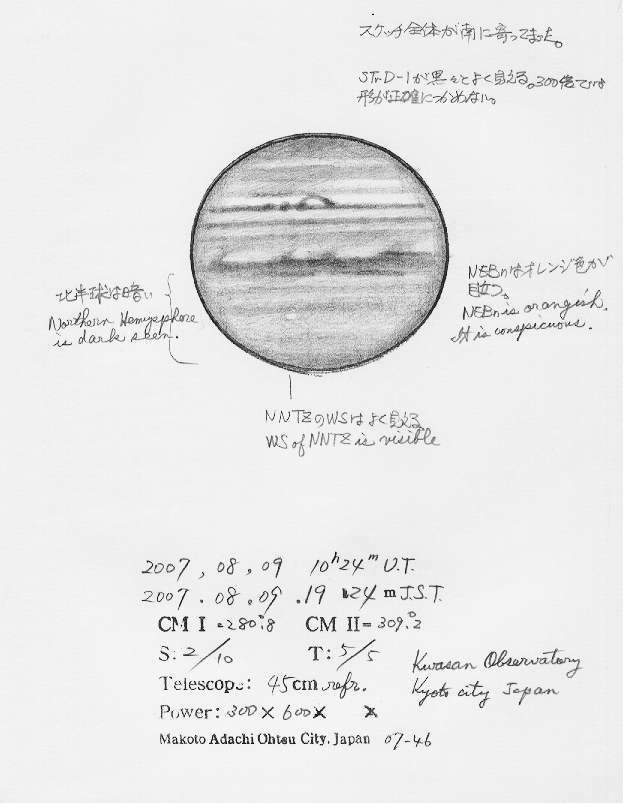 スケッチ全体が南に寄ってました。
STrD-1が黒々とよく見える。300倍では
形が正確につかめない。
北半球は暗い
Northern Hemysphere
is dark seen.
NEBnはオレンジ色が
目立つ。
NEBn is orangish.
It is conspicuous.
NNTZのWSはよく見える
WS of NNTZ is visible
2007, 08, 09 10h24m U.T.
2007.08.09 .19 24 m J.S.T.
CM I = 280°.8 CM II = 309°.2
S: 2/10 T: 5/5
Telescope: 45cm refr.
Power: 300 X 600 X X
Kwasan Observatory
Kyoto city Japan
Makoto Adachi Ohtsu City, Japan 07-46